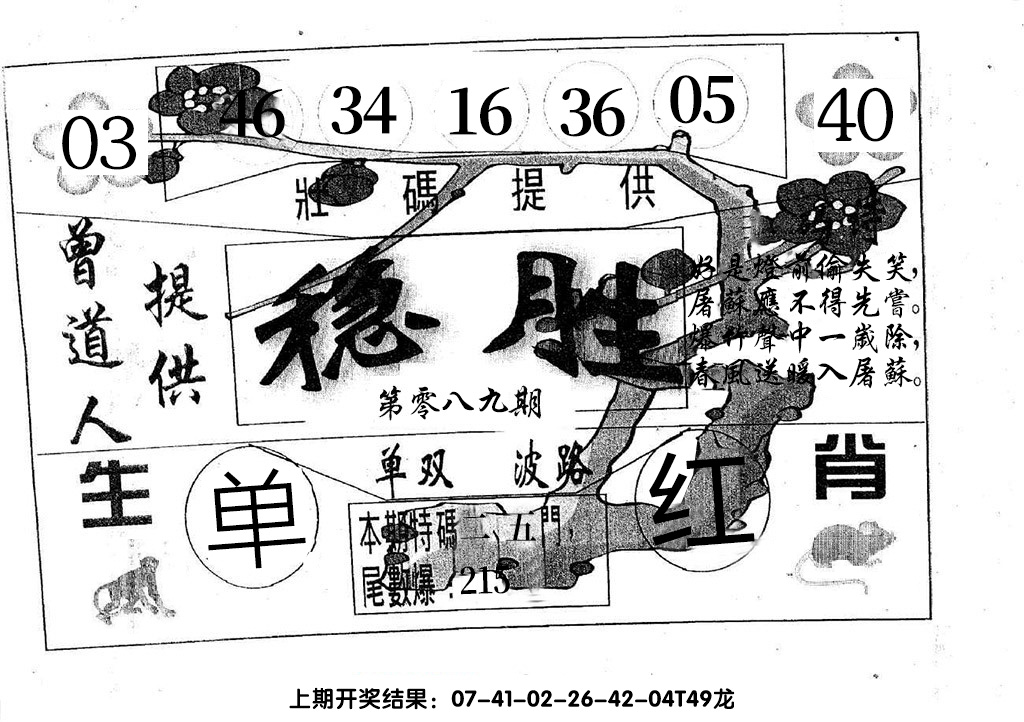 03 46 34 16 36 05 40
壯碼提供
特
曾道人
提供
稳胜
好是燈前偷失笑，
屠蘇應不得先嘗。
爆竹聲中一歲除，
春風送暖入屠蘇。
第零八九期
单双 波路
生肖
单
红
本期特碼二、五門，
尾數爆：215
上期开奖结果：07-41-02-26-42-04T49龙